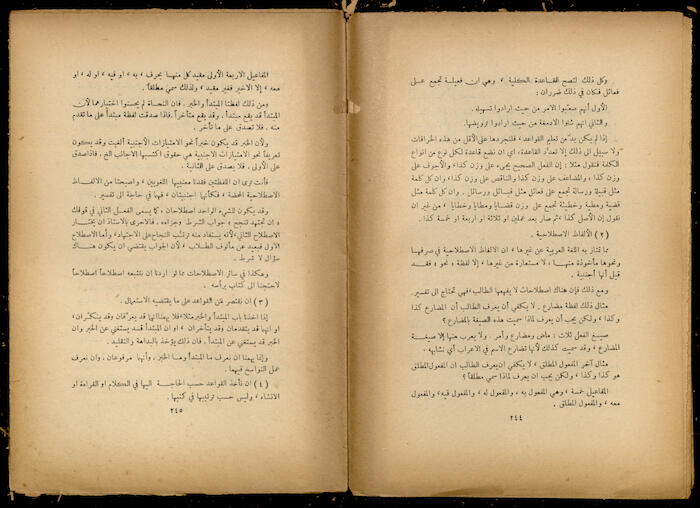 وكل ذلك لتصح القاعدة الكلية ، وهي ان فعيلة تجمع على
فعائل فكان في ذلك ضرران :
الأول أنهم صعبوا الامر من حيث ارادوا تسهيله .
والثاني انهم شلوا الادمغة من حيث ارادوا ترويضها .
إذا لم يكن بد من تعليم القواعد ، فلنجردها على الأقل من هذه الخرافات
ولا سبيل الى ذلك إلا تعداد القاعدة ، اي ان نضع قاعدة لكل نوع من انواع
الكلمة فنقول مثلا : إن الفعل الصحيح يجيء على وزن كذا ، والأجوف على
وزن كذا ، والمضاعف على وزن كذا والناقص على وزن كذا ، وان كل كلمة
مثل قبيلة ورسالة تجمع على فعائل مثل قبائل ورسائل . وان كل كلمة مثل
قضية ومطية وخطيئة تجمع على وزن قضايا ومطايا وخطايا ، من غير ان
نقول إن الأصل كذا ، ثم صار بعد عملين او ثلاثة او اربعة او خمسة كذا .
( ٢ ) الألفاظ الاصطلاحية .
مما تمتاز به اللغة العربية عن غيرها ، ان الالفاظ الاصطلاحية في صرفها
ونحوها مأخوذة منهـا ، لا مستعارة من غيرها ، إلا لفظة « نحو » فقـد
قيل أنها أجنبية .
ومع ذلك فإن هناك اصطلاحات لا يفهمها الطالب ، فهي تحتاج الى تفسير .
مثال ذلك لفظة مضارع . لا يكفي أن يعرف الطالب أن المضارع كذا
وكذا ، ولكن يجب أن يعرف لماذا سميت هذه الصيغة بالمضارع ؟
صيغ الفعل ثلاث : ماض ومضارع وأمر . ولا يعرب منها إلا صيغـة
المضارع ، وقد سميت كذلك لأنها تضارع الاسم في الاعراب أي تشابهه .
مثال آخر المفعول المطلق ، لا يكفي ان يعرف الطالب ان المفعول المطلق
هو كذا وكذا ، ولكن يجب ان يعرف لماذا سمي مطلقاً ؟
المفاعيل خمسة ، وهي المفعول به ، والمفعول له ، والمفعول فيه ، والمفعول
معه ، والمفعول المطلق .
٢٤٤
المفاعيل الاربعة الأولى مقيد كل منهـا بحرف ، به ، او فيه ، او له ، او
معه ، إلا الاخير فغير مقيد ، ولذلك سمي مطلقاً .
ومن ذلك لفظتا المبتدأ والخبر . فان النحـاة لم يحسنوا اختيارهما لأن
المبتدأ قد يقع مبتدأ . وقد يقع متأخراً . فاذا صدقت لفظة مبتدأ على ما تقدم
منه . فلا تصدق على ما تأخر .
ولأن الخبر قد يكون خبراً نحو الامتيازات الأجنبية ألغيت وقد يكون
تعريفاً نحو الامتيازات الاجنبية هي حقوق اكتسبها الاجانب الخ ، فاذا صدق
على الاولى . فلا يصدق على الثانية .
فأنت ترى ان اللفظتين فقدتا معنييها اللغويين ، واصبحتا من الالفـاظ
الاصطلاحية المحضة ، فكأنهما اجنبيتان ، فهما في حاجة الى تفسير .
وقد يكون للشيء الواحد اصطلاحان ، كما يسمى الفعل الثاني في قولك
« ان تجتهد تنجح » جواب الشرط وجزاءه . فالاحرى بالاستاذ ان يختـار
الاصطلاح الثاني ، لأنه يستفاد منه ترتب النجاح على الاجتهاد ، وأما الاصطلاح
الاول فبعيد عن مألوف الطلاب ، لأن الجواب يقتضي ان يكون هنـاك
سؤال لا شرط .
وهكذا في سائر الاصطلاحات مما لو اردنا ان نتتبعه اصطلاحاً اصطلاحاً
لاحتجنا الى كتاب برأسه .
( ٣ ) ان نقتصر من القواعد على ما يقتضيه الاستعمال .
إذا اخذنا باب المبتدأ والخبر مثلا ، فلا يهمنا انها قد يعرفان وقد ينكران ، او
او انهما قد يتقدمان وقد يتأخران ، او ان المبتدأ قـد يستغني عن الخبر وان
الخبر قد يستغني عن المبتدأ . فان ذلك يؤخذ بالبداهة والتقليد .
وإنما يهمنا ان نعرف ما المبتدأ وما الخبر . وأنهما مرفوعان . وان نعرف
عمل النواسخ فيهما .
( ٤ ) ان نأخذ القواعد حسب الحاجـة اليها في الكلام او القراءة او
الانشاء ، وليس حسب ترتيبها في كتبها .
٢٤٥